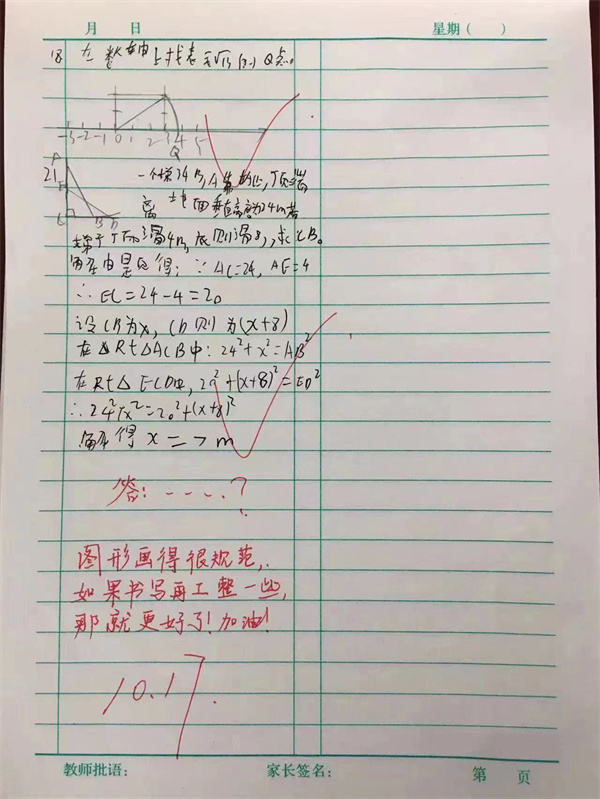 月 日 星期( )
18 在数轴上找表示√13的 Q点。
-3 -2 -1 0 1 2 3 4 5
Q
A
E
C B D
一个
24m
离地面垂直高为24m若
4m, 底则滑8, 求CB。
解: 由题意得: ∵ AC=24, AE=4
∴ EC=24-4=20
设CB为x, CD则为(x+8)
在△Rt△ACB中: 24²+x²=AB²
在Rt△ECD中, 20²+(x+8)²=ED²
∴24²+x²=20²+(x+8)²
解得 x=7m
答: ----?
图形画得很规范,
如果书写再工整一些,
那就更好了!加油!
10.17.
教师批语: 家长签名: 第 页